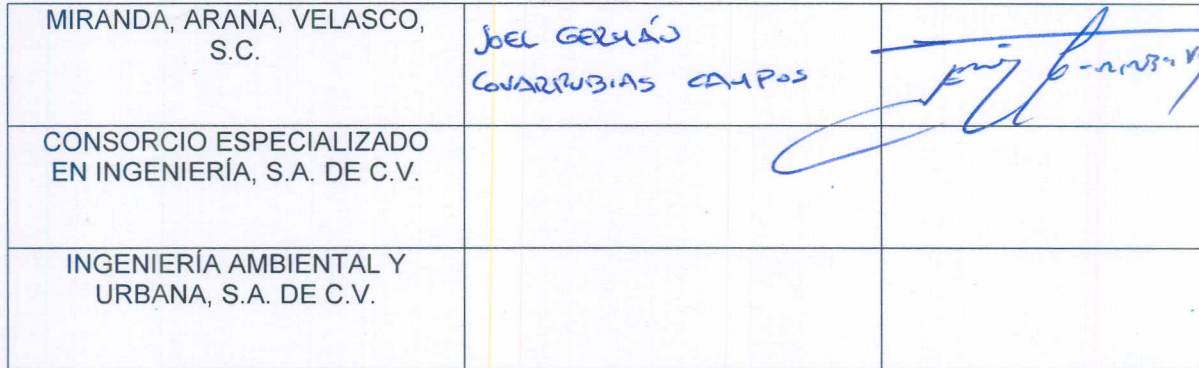 MIRANDA, ARANA, VELASCO,
S.C.
JOEL GERMÁN
COVARRUBIAS CAMPOS
CONSORCIO ESPECIALIZADO
EN INGENIERÍA, S.A. DE C.V.
INGENIERÍA AMBIENTAL Y
URBANA, S.A. DE C.V.